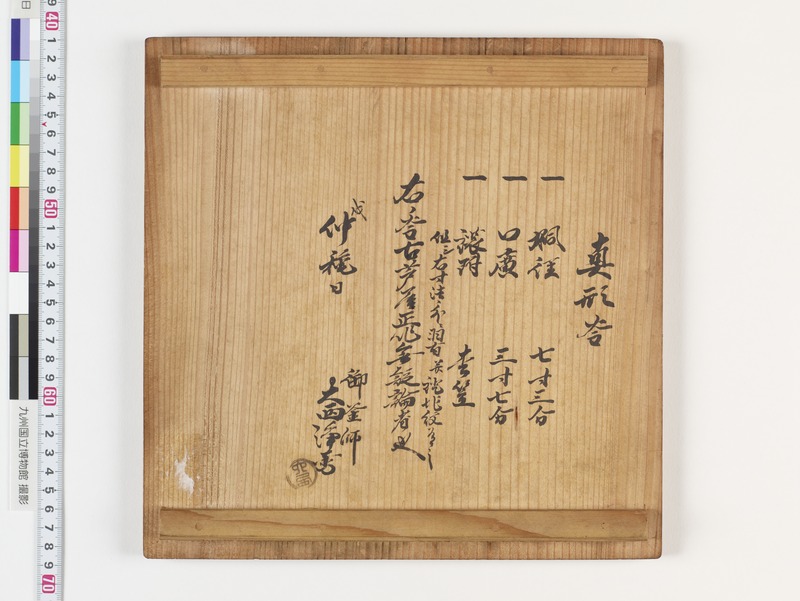 真形釜
一 胴径 七寸三分
一 口廣 三寸七分
一 鐶附 李笠
但シ右寸法ノ外ニ羽有
右釜古芦屋正作無疑論者也
戌
仲穐日
御釜師
大西浄寿
九州国立博物館 撮影
9
40
1
2
3
4
5
6
7
8
9
50
1
2
3
4
5
6
7
8
9
60
1
2
3
4
5
6
7
8
9
70